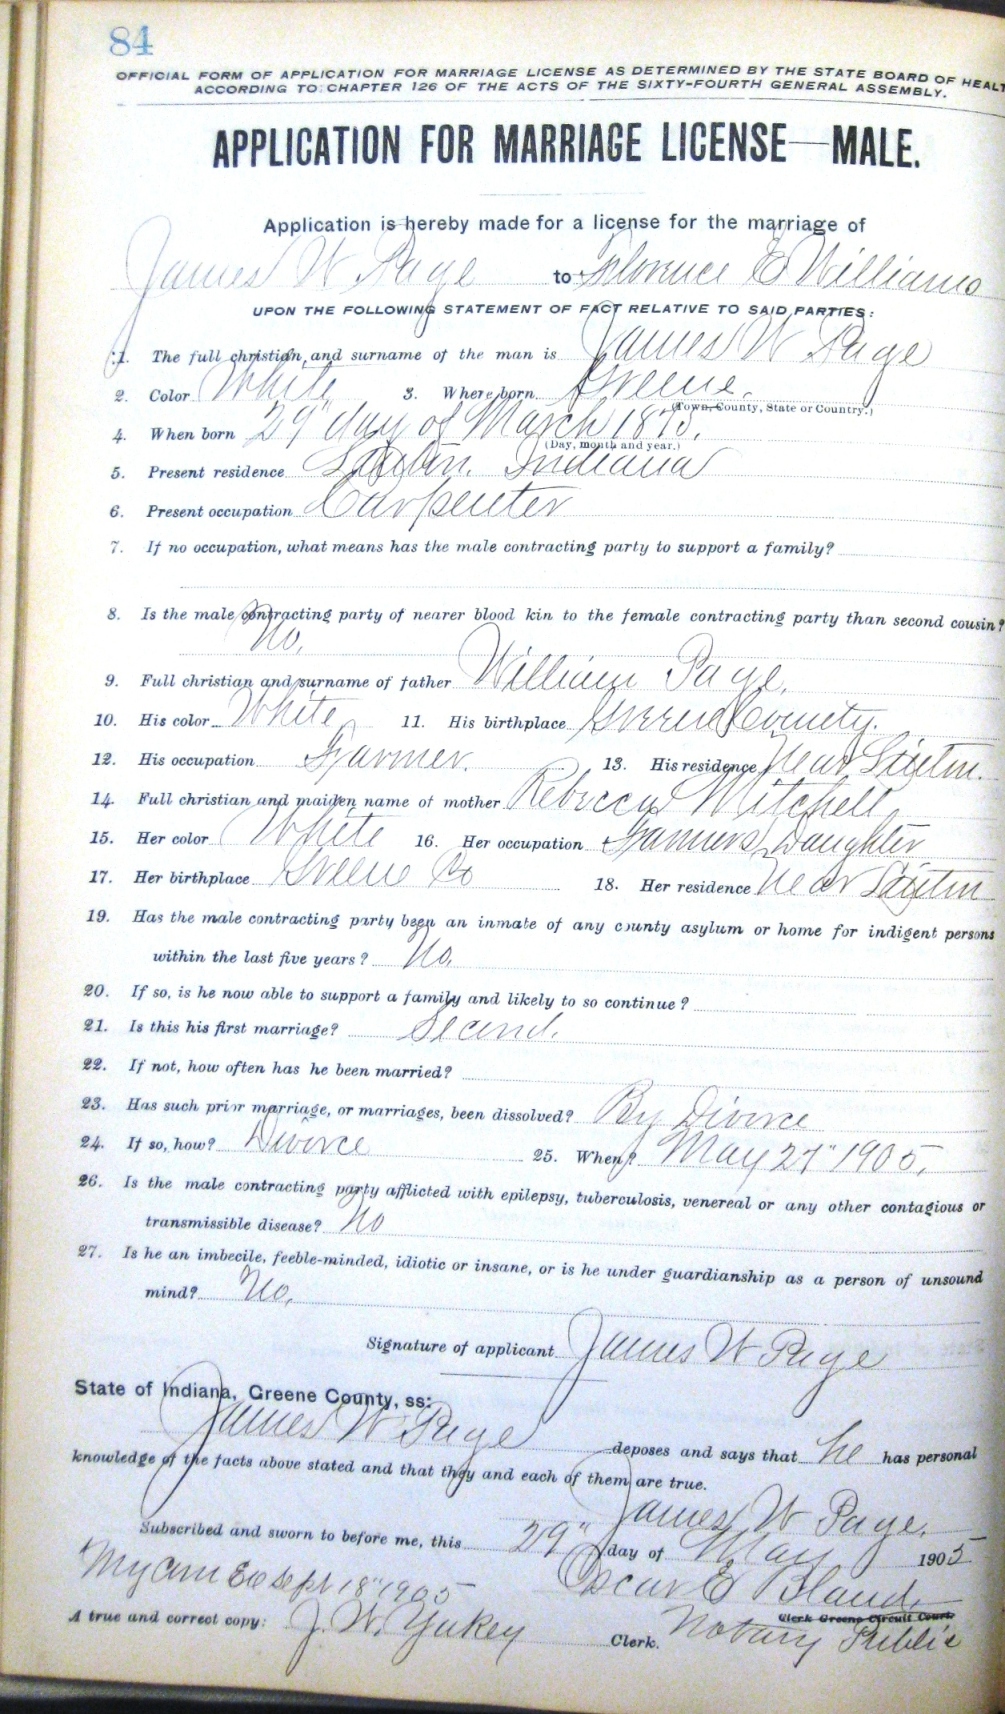 84
OFFICIAL FORM OF APPLICATION FOR MARRIAGE LICENSE AS DETERMINED BY THE STATE BOARD OF HEALT
ACCORDING TO CHAPTER 126 OF THE ACTS OF THE SIXTY-FOURTH GENERAL ASSEMBLY.
APPLICATION FOR MARRIAGE LICENSE—MALE.
Application is hereby made for a license for the marriage of
James W Page to Florence E Williams
UPON THE FOLLOWING STATEMENT OF FACT RELATIVE TO SAID PARTIES:
1. The full christian and surname of the man is James W Page
2. Color White 3. Where born Greene.
(Town, County, State or Country.)
4. When born 29" day of March 1875.
(Day, month and year.)
5. Present residence Indiana
6. Present occupation Carpenter
7. If no occupation, what means has the male contracting party to support a family?
8. Is the male contracting party of nearer blood kin to the female contracting party than second cousin?
No.
9. Full christian and surname of father William Page.
10. His color White 11. His birthplace Greene County.
12. His occupation Farmer. 13. His residence Near
14. Full christian and maiden name of mother Rebecca Mitchell
15. Her color White 16. Her occupation Farmers Daughter
17. Her birthplace Greene Co 18. Her residence Near
19. Has the male contracting party been an inmate of any county asylum or home for indigent persons
within the last five years? No.
20. If so, is he now able to support a family and likely to so continue?
21. Is this his first marriage? Second.
22. If not, how often has he been married?
23. Has such prior marriage, or marriages, been dissolved? By Divorce
24. If so, how? Divorce 25. When? May 27" 1905.
26. Is the male contracting party afflicted with epilepsy, tuberculosis, venereal or any other contagious or
transmissible disease? No
27. Is he an imbecile, feeble-minded, idiotic or insane, or is he under guardianship as a person of unsound
mind? No.
Signature of applicant James W Page
State of Indiana, Greene County, ss:
James W Page deposes and says that he has personal
knowledge of the facts above stated and that they and each of them are true.
James W Page.
Subscribed and sworn to before me, this 29" day of May 1905
My Com Ex Sept 18" 1905 Oscar E Bland.
Clerk Greene Circuit Court.
A true and correct copy: J. W. Yakey Clerk. Notary Public